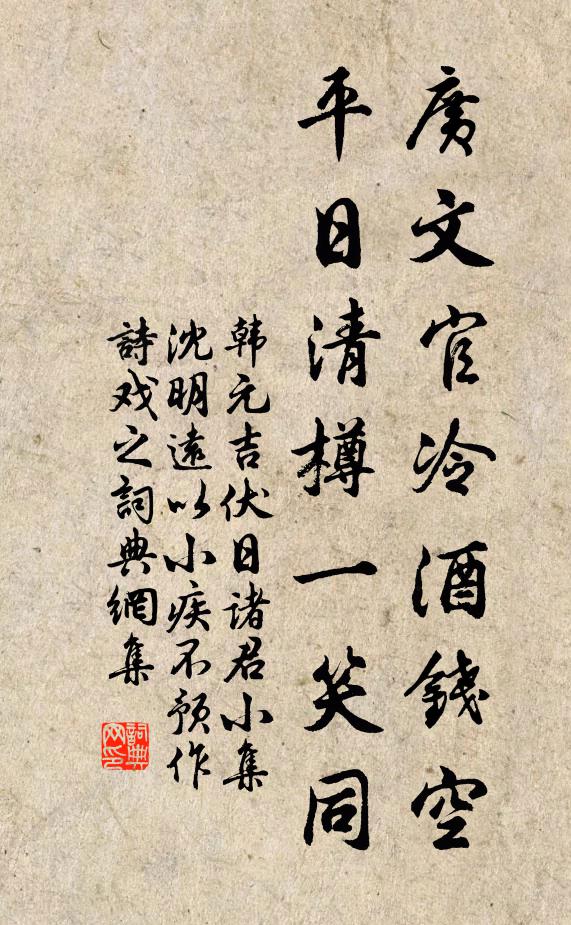 廣文官冷酒錢空
平日清樽一笑同
韩元吉伏日诸君小集
沈明遠以小疾不预作
詩戏之詞典網集
詞典
网印